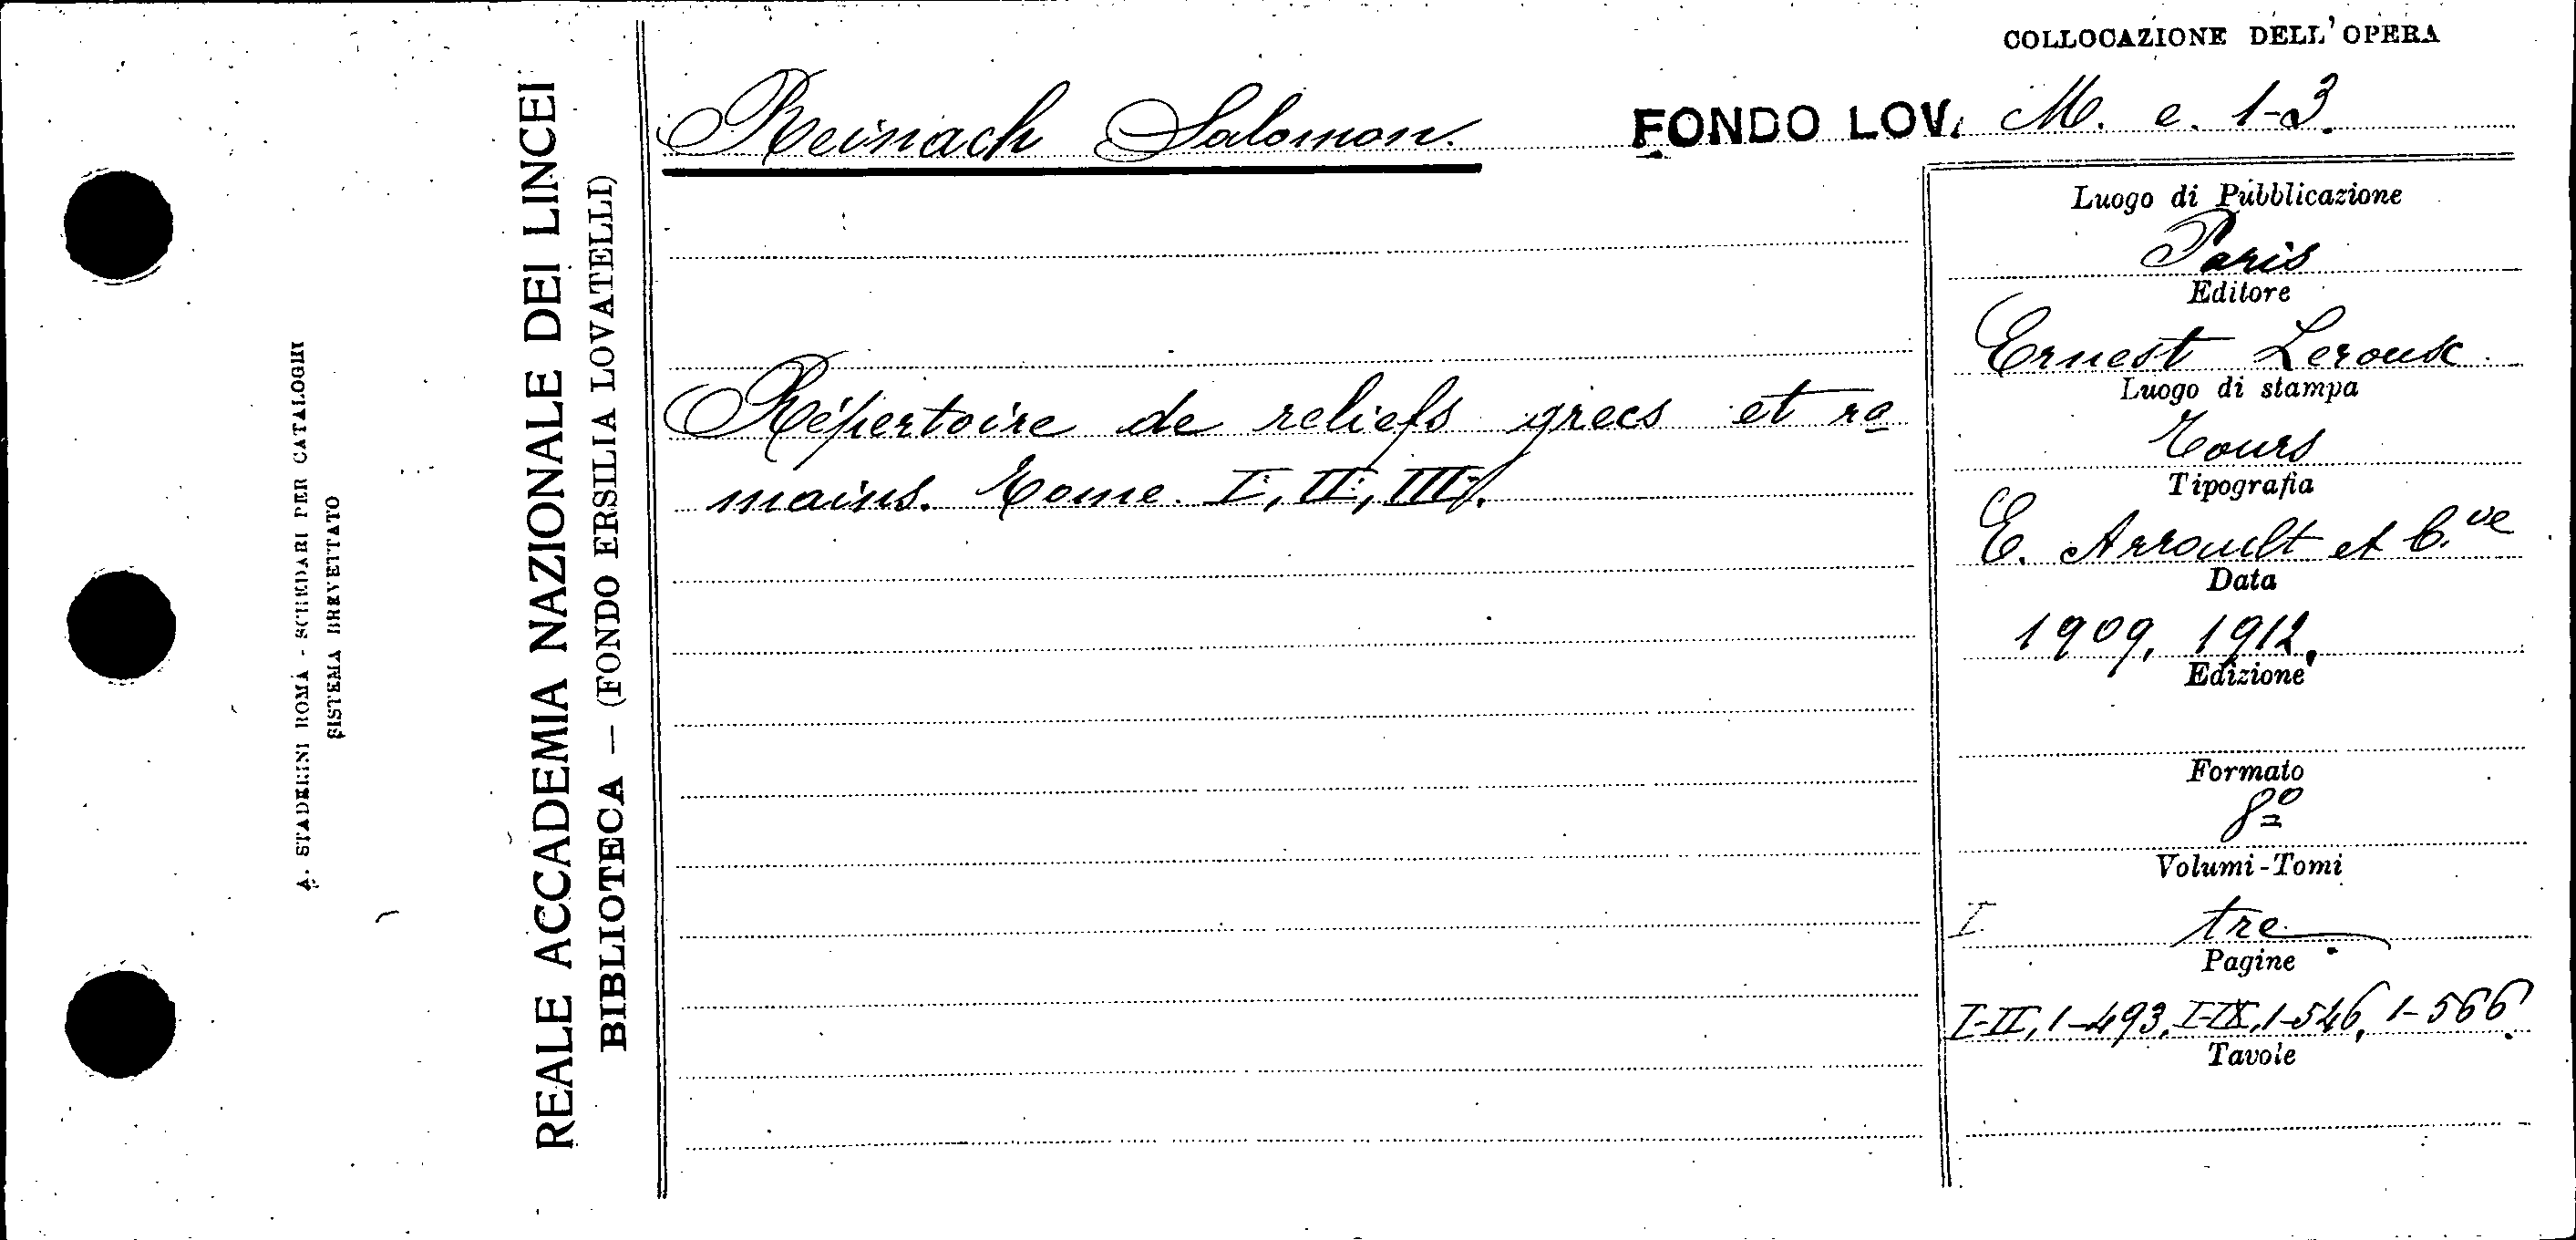 COLLOCAZIONE DELL'OPERA
Reinach Salomon. FONDO LOV. M. e. 1-3.
Répertoire de reliefs grecs et ro
mains. Tome I, II, III.
Luogo di Pubblicazione
Paris
Editore
Ernest Leroux
Luogo di stampa
Tours
Tipografia
E. Arrault et C.ie
Data
1909, 1912,
Edizione
Formato
8º
Volumi-Tomi
I tre
Pagine
I-II, 1-493, I-IX, 1-546, 1-566.
Tavole
REALE ACCADEMIA NAZIONALE DEI LINCEI
BIBLIOTECA — (FONDO ERSILIA LOVATELLI)
A. STADERINI ROMA - SCHEDARI PER CATALOGHI
SISTEMA BREVETTATO